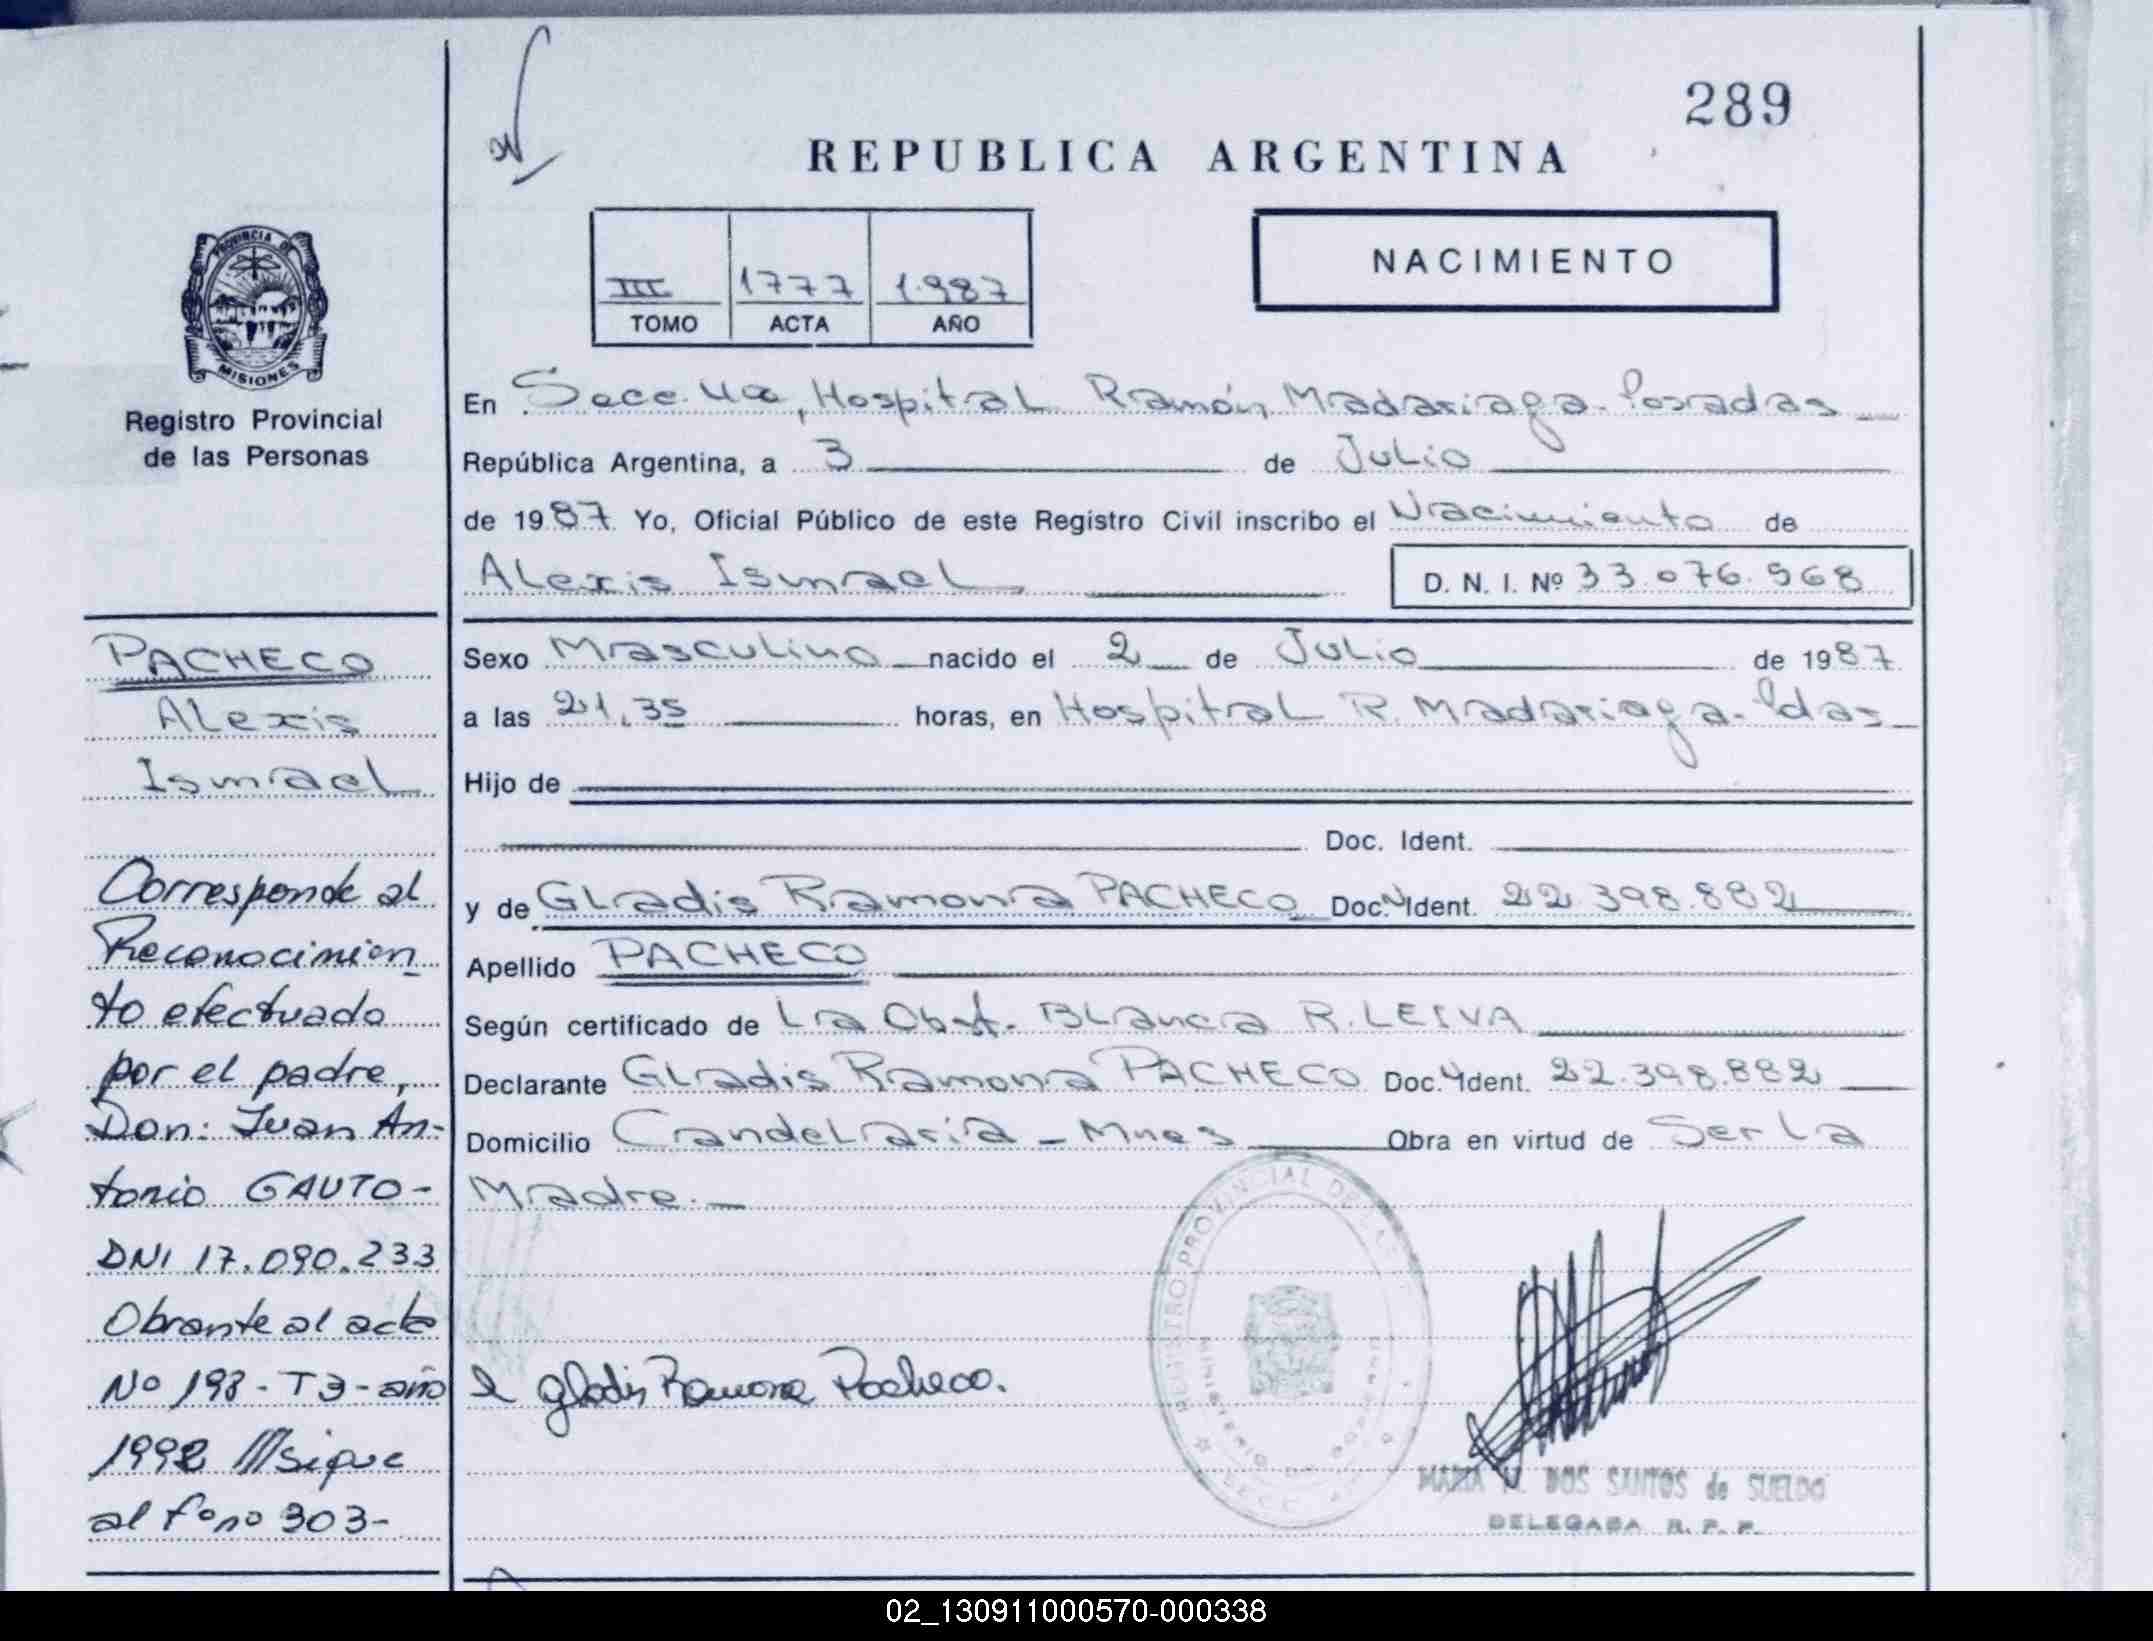 289
REPUBLICA ARGENTINA
III 1777 1.987
TOMO ACTA AÑO
NACIMIENTO
PROVINCIA DE
MISIONES
Registro Provincial
de las Personas
En Secc. 4a, Hospital Ramón Madariaga - Posadas
República Argentina, a 3 de Julio
de 1987 Yo, Oficial Público de este Registro Civil inscribo el Nacimiento de
Alexis Ismael D. N. I. Nº 33.076.968
Sexo Masculino nacido el 2 de Julio de 1987
a las 21,35 horas, en Hospital R. Madariaga - Pdas
Hijo de
Doc. Ident.
y de Gladis Ramona PACHECO Doc. Ident. 22.398.882
Apellido PACHECO
Según certificado de La Obst. Blanca R. LEIVA
Declarante Gladis Ramona PACHECO Doc. Ident. 22.398.882
Domicilio Candelaria - Mnes Obra en virtud de Ser la
Madre.-
PACHECO
Alexis
Ismael
Corresponde al
Reconocimien
to efectuado
por el padre,
Don: Juan An-
tonio GAUTO-
DNI 17.090.233
Obrante al acta
Nº 198 - T3 - año
1992 ///sigue
al fono 303-
Gladis Ramona Pacheco.
REGISTRO PROVINCIAL DE LAS
MINISTERIO DE GOBIERNO
MARIA DOS SANTOS de SUELDO
DELEGADA R. P. P.
02_130911000570-000338